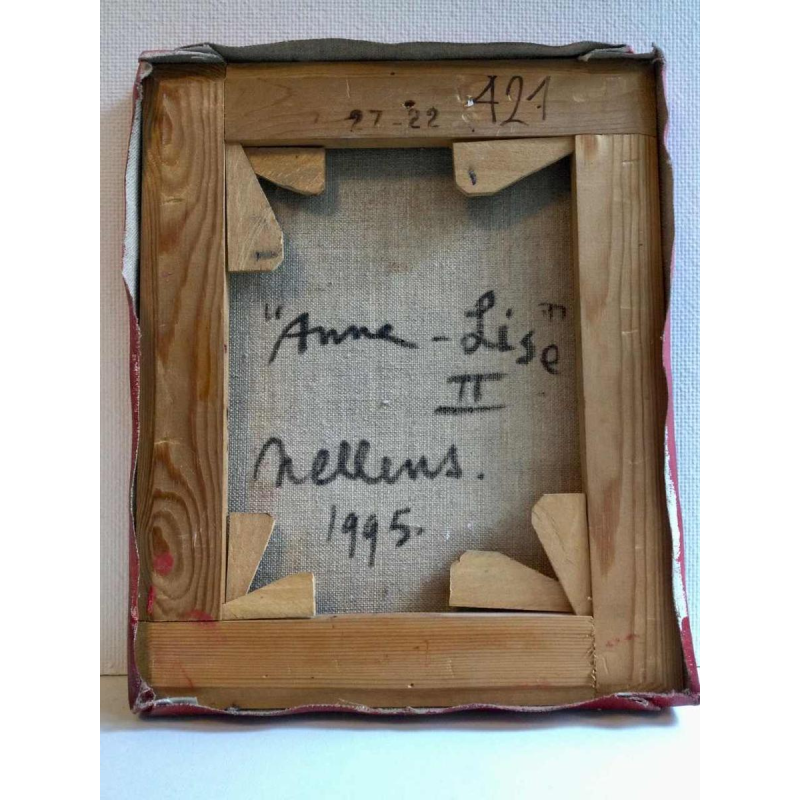 27-22 421
"Anne-Lise"
II
Nellens.
1995.